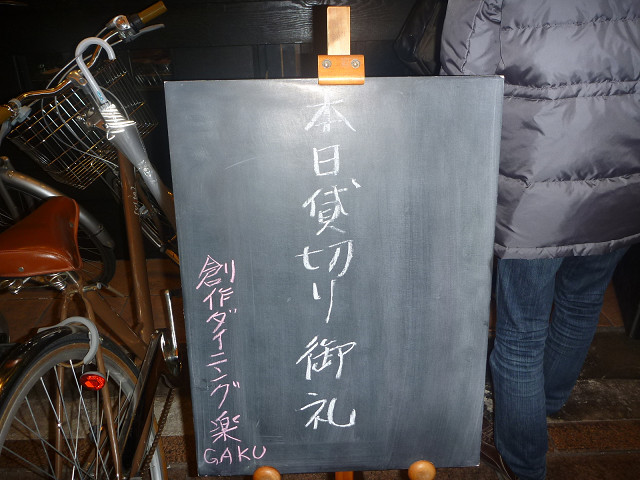 本日貸切り御礼
創作ダイニング楽
GAKU